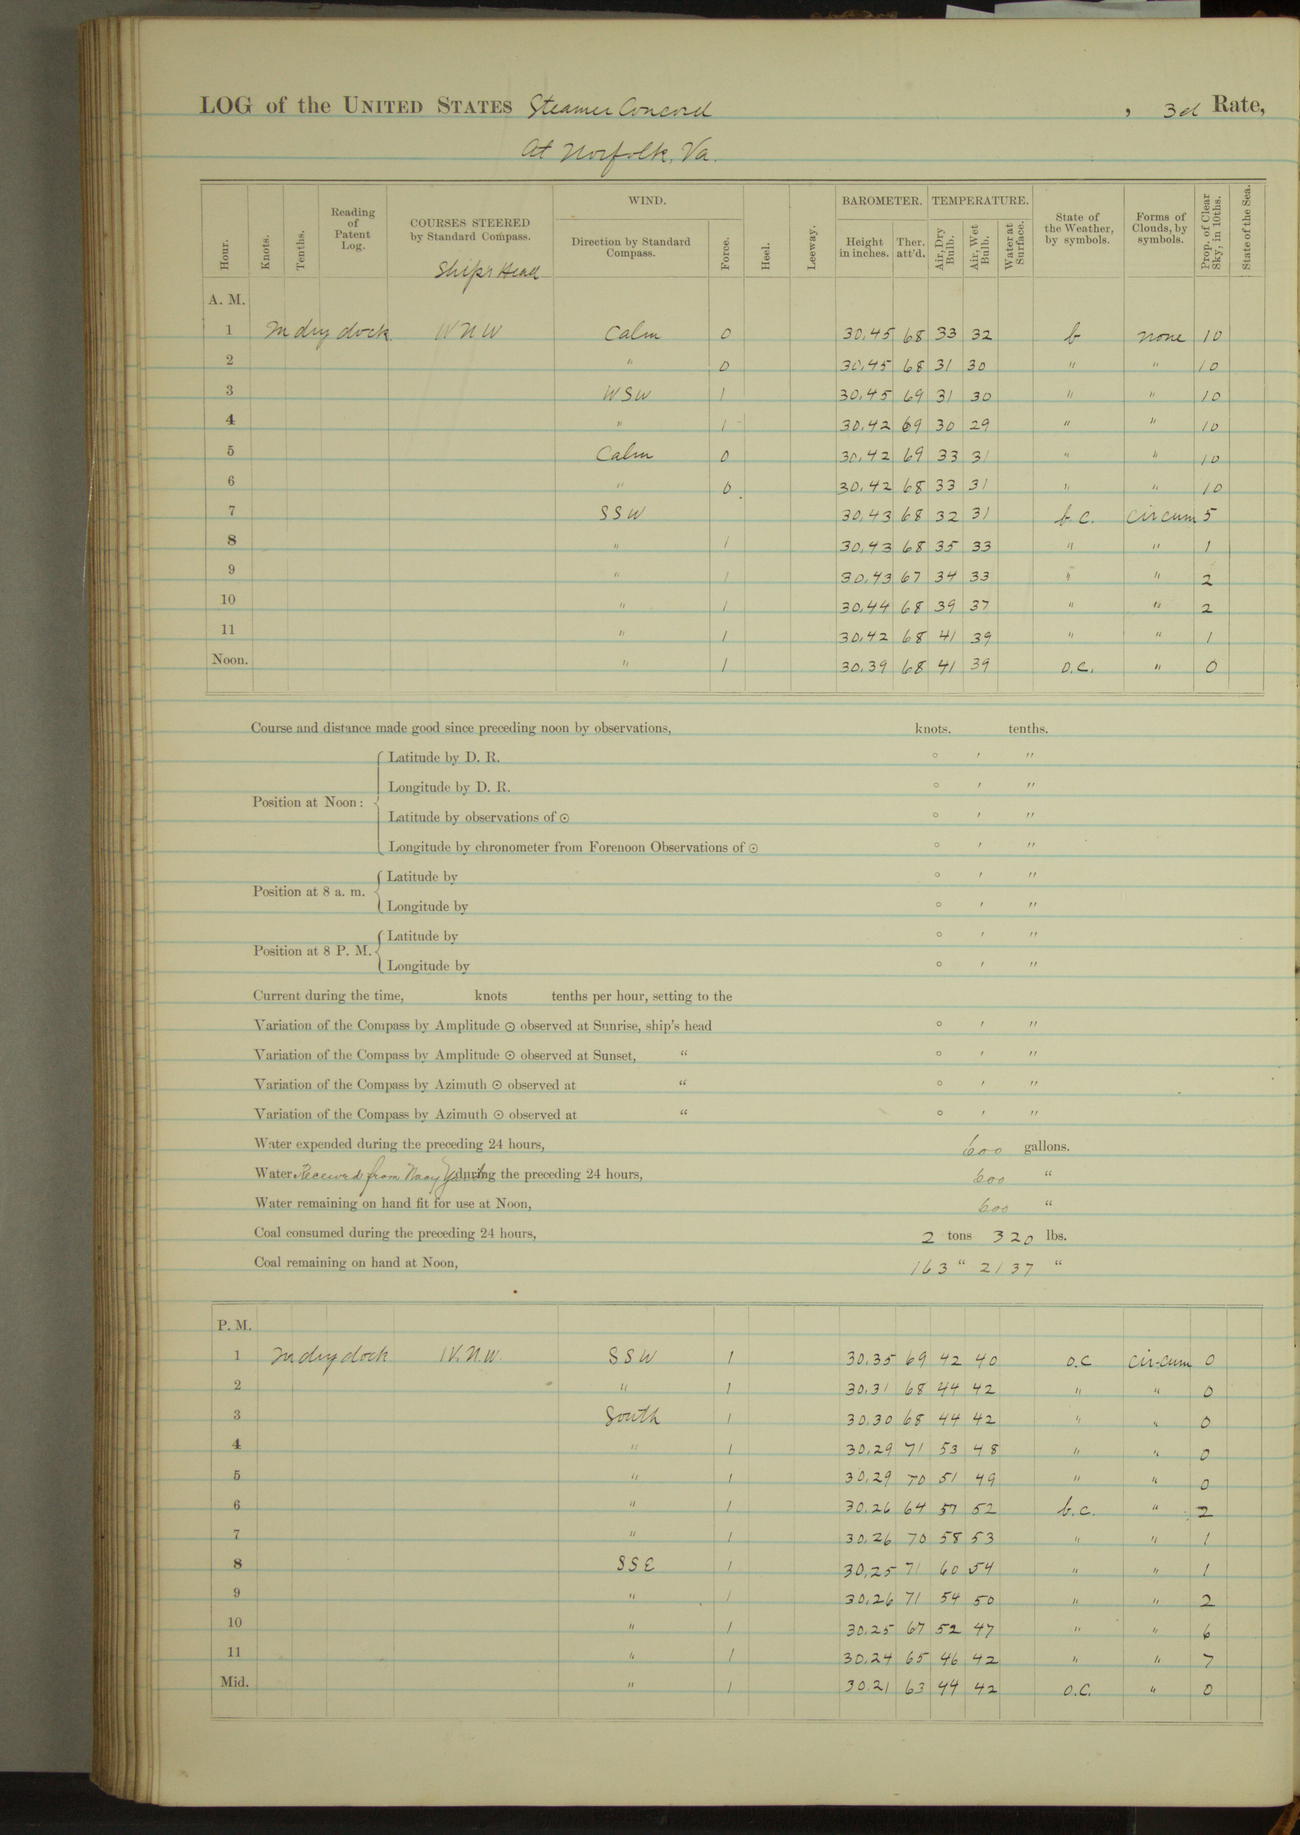 LOG of the UNITED STATES Steamer Concord, 3d Rate,
At Norfolk, Va.
Hour. Knots. Tenths. Reading of Patent Log. COURSES STEERED by Standard Compass. WIND. Direction by Standard Compass. Force. Heel. Leeway. BAROMETER. Height in inches. Ther. att'd. TEMPERATURE. Air, Dry Bulb. Air, Wet Bulb. Water at Surface. State of the Weather, by symbols. Forms of Clouds, by symbols. Prop. of Clear Sky, in 10ths. State of the Sea.
Ships Head
A. M.
1 In dry dock WNW Calm 0 30.45 68 33 32 b none 10
2 " 0 30.45 68 31 30 " " 10
3 WSW 1 30.45 69 31 30 " " 10
4 " 1 30.42 69 30 29 " " 10
5 Calm 0 30.42 69 33 31 " " 10
6 " 0 30.42 68 33 31 " " 10
7 SSW 30.43 68 32 31 b.c. circum 5
8 " 1 30.43 68 35 33 " " 1
9 " 1 30.43 67 34 33 " " 2
10 " 1 30.44 68 39 37 " " 2
11 " 1 30.42 68 41 39 " " 1
Noon. " 1 30.39 68 41 39 o.c. " 0
Course and distance made good since preceding noon by observations, knots. tenths.
Position at Noon:
Latitude by D. R. ° ′ ″
Longitude by D. R. ° ′ ″
Latitude by observations of ⊙ ° ′ ″
Longitude by chronometer from Forenoon Observations of ⊙ ° ′ ″
Position at 8 a. m.
Latitude by ° ′ ″
Longitude by ° ′ ″
Position at 8 P. M.
Latitude by ° ′ ″
Longitude by ° ′ ″
Current during the time, knots tenths per hour, setting to the
Variation of the Compass by Amplitude ⊙ observed at Sunrise, ship's head ° ′ ″
Variation of the Compass by Amplitude ⊙ observed at Sunset, " ° ′ ″
Variation of the Compass by Azimuth ⊙ observed at " ° ′ ″
Variation of the Compass by Azimuth ⊙ observed at " ° ′ ″
Water expended during the preceding 24 hours, 600 gallons.
Water Received from Navy Yard during the preceding 24 hours, 600 "
Water remaining on hand fit for use at Noon, 600 "
Coal consumed during the preceding 24 hours, 2 tons 320 lbs.
Coal remaining on hand at Noon, 163 " 2137 "
P. M.
1 In dry dock W.N.W. SSW 1 30.35 69 42 40 o.c circum 0
2 " 1 30.31 68 44 42 " " 0
3 South 1 30.30 68 44 42 " " 0
4 " 1 30.29 71 53 48 " " 0
5 " 1 30.29 70 51 49 " " 0
6 " 1 30.26 64 57 52 b.c. " 2
7 " 1 30.26 70 58 53 " " 1
8 SSE 1 30.25 71 60 54 " " 1
9 " 1 30.26 71 54 50 " " 2
10 " 1 30.25 67 52 47 " " 6
11 " 1 30.24 65 46 42 " " 7
Mid. " 1 30.21 63 44 42 o.c. " 0